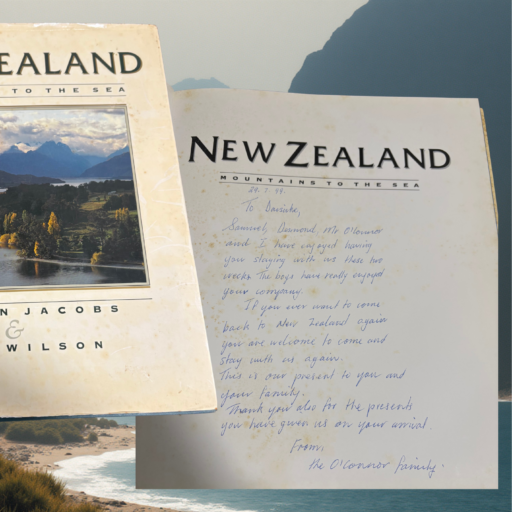 EALAND
TO THE SEA
N JACOBS
&
WILSON
NEW ZEALAND
MOUNTAINS TO THE SEA
To Daisuke,
Samuel, Desmond, Mr O'Connor
and I have enjoyed having
you staying with us these two
weeks. The boys have really enjoyed
your company.
If you ever want to come
back to New Zealand again
you are welcome to come and
stay with us again.
This is our present to you and
your family.
Thank you also for the presents
you have given us on your arrival.
From,
the O'Connor family.